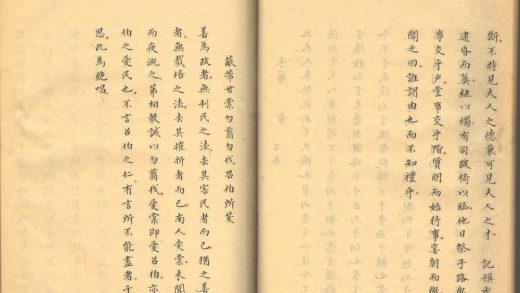 斷不特見夫人之德兼可見夫人之才 記稱
逮昏而奠繼以燭有司跛倚以臨他日祭子路與
事交乎戶堂事交乎階質明而始行事宴朝而
聞之曰誰謂由也而不知禮乎
蔽芾甘棠勿翦勿伐召伯所茇
善為政者無利民之法去其害民者而已猶之善
者無栽培之法去其摧折者而已南人愛棠未聞
而夜溉之第相教誡以勿翦伐愛棠即愛召伯亦
伯之愛民也不言召伯之仁有言所不能盡者于
思此為絕唱